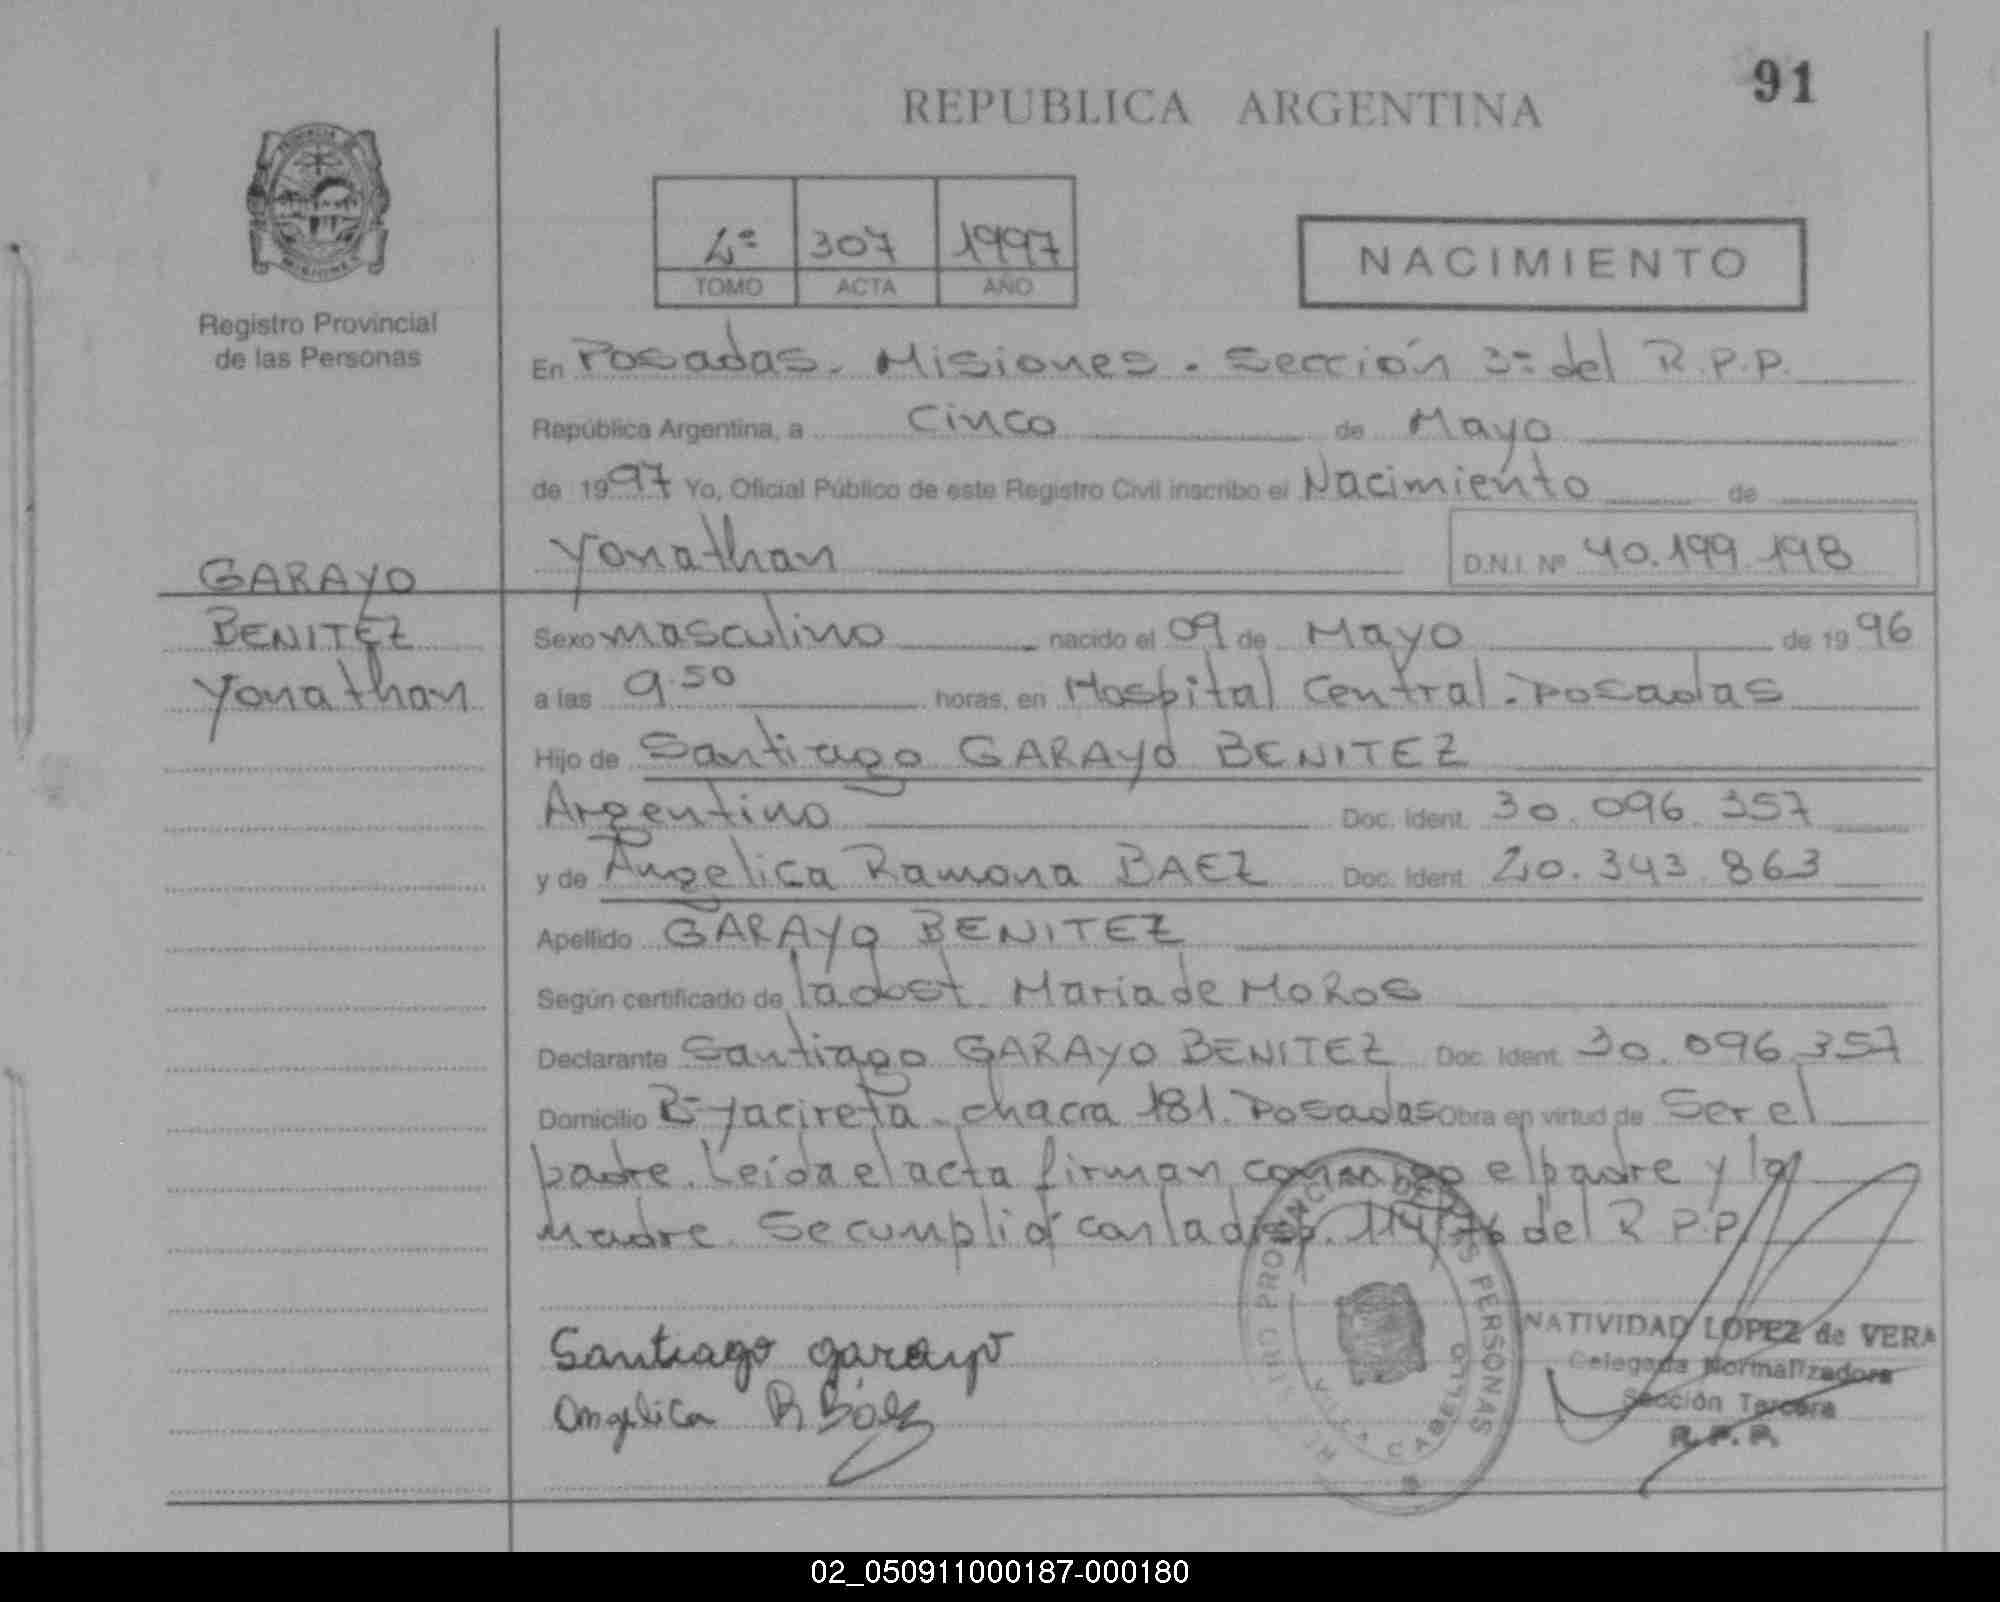 91
REPUBLICA ARGENTINA
Registro Provincial
de las Personas
4º 307 1997
TOMO ACTA AÑO
NACIMIENTO
En Posadas. Misiones. Sección 3º del R.P.P.
República Argentina, a Cinco de Mayo
de 1997 Yo, Oficial Público de este Registro Civil inscribo el Nacimiento de
Yonathan D.N.I. Nº 40.199.198
GARAYO
BENITEZ
Yonathan
Sexo masculino nacido el 09 de Mayo de 1996
a las 9.50 horas, en Hospital Central. Posadas
Hijo de Santiago GARAYO BENITEZ
Argentino Doc. Ident. 30.096.357
y de Angelica Ramona BAEZ Doc. Ident. 20.343.863
Apellido GARAYO BENITEZ
Según certificado de la obst. Maria de MOROS
Declarante Santiago GARAYO BENITEZ Doc. Ident. 30.096.357
Domicilio Bº Yacireta. chacra 181. Posadas Obra en virtud de Ser el
padre. Leida el acta firman conmigo el padre y la
madre. Se cumplió con la disp. 114/76 del R.P.P.
Santiago garayo
Angelica R Báez
PROVINCIAL DE LAS PERSONAS
VILLA CABELLO
NATIVIDAD LOPEZ de VERA
Delegada Normalizadora
Sección Tercera
R.P.P.
02_050911000187-000180